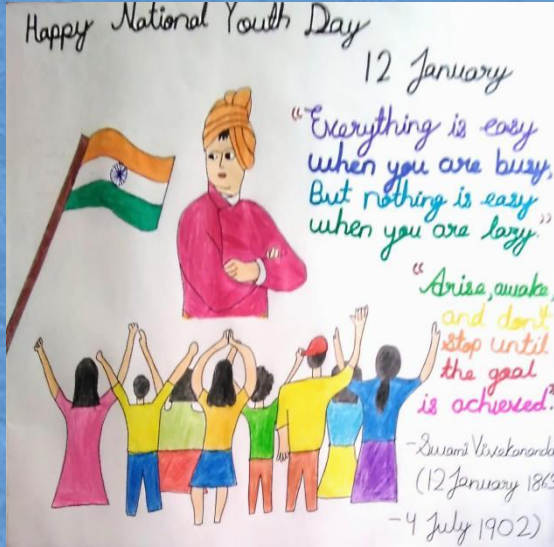 Happy National Youth Day
12 January
"Everything is easy
when you are busy,
But nothing is easy
when you are lazy."
"Arise, awake,
and don't
stop until
the goal
is achieved."
-Swami Vivekananda
(12 January 1863
-4 July 1902)